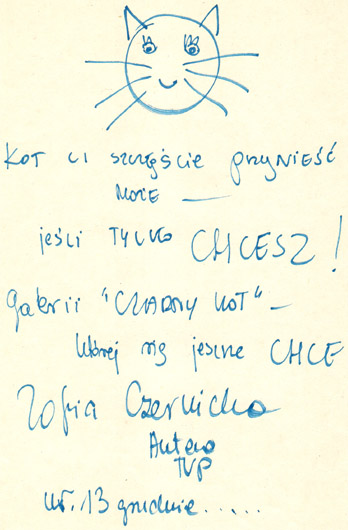 KOT CI SZCZĘŚCIE PRZYNIEŚĆ
MOŻE —
jeśli TYLKO CHCESZ!
Galerii "CZARNY KOT" —
której się jeszcze CHCE
Zofia Czernicka
Antena
TVP
ur. 13 grudnia.....